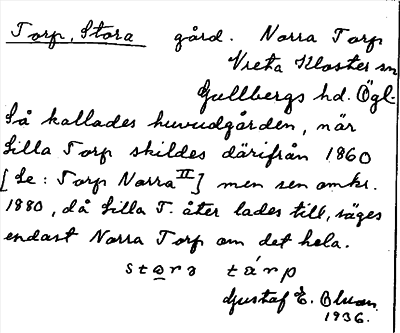 Torp, Stora gård. Norra Torp
Vreta Kloster sn
Gullbergs hd. Ögl.
Så kallades huvudgården, när
Lilla Torp skildes därifrån 1860
[Se: Torp Norra II] men sen omkr.
1880, då Lilla T. åter lades till, säges
endast Norra Torp om det hela.
stora tárp
Gustaf E.
1936.